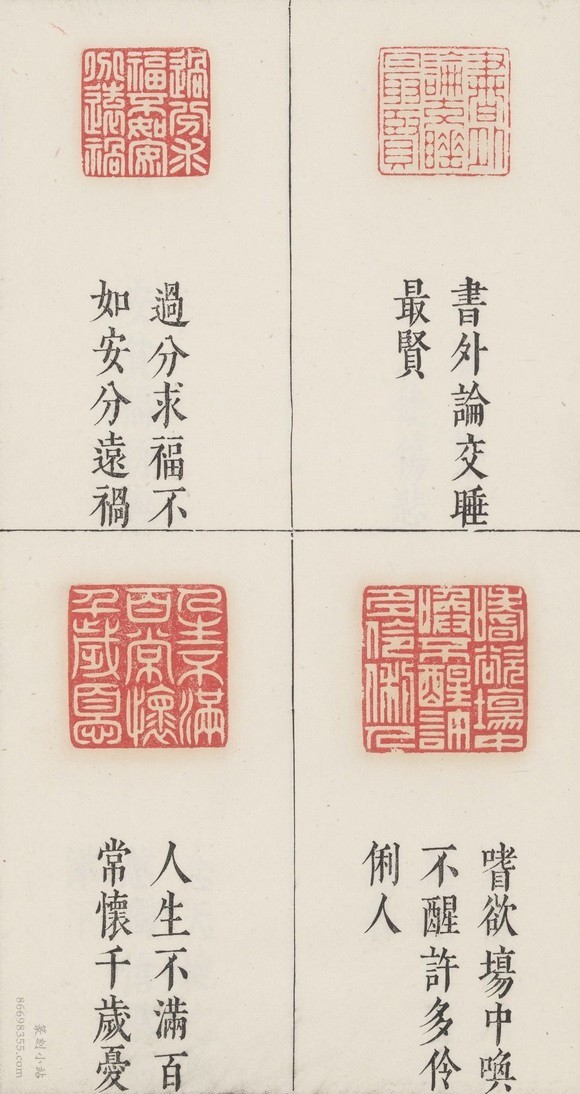 書外論交睡
最賢
過分求福不
如安分遠禍
嗜欲場中喚
不醒許多伶
俐人
人生不滿百
常懷千歲憂
篆刻小站
86698355.com